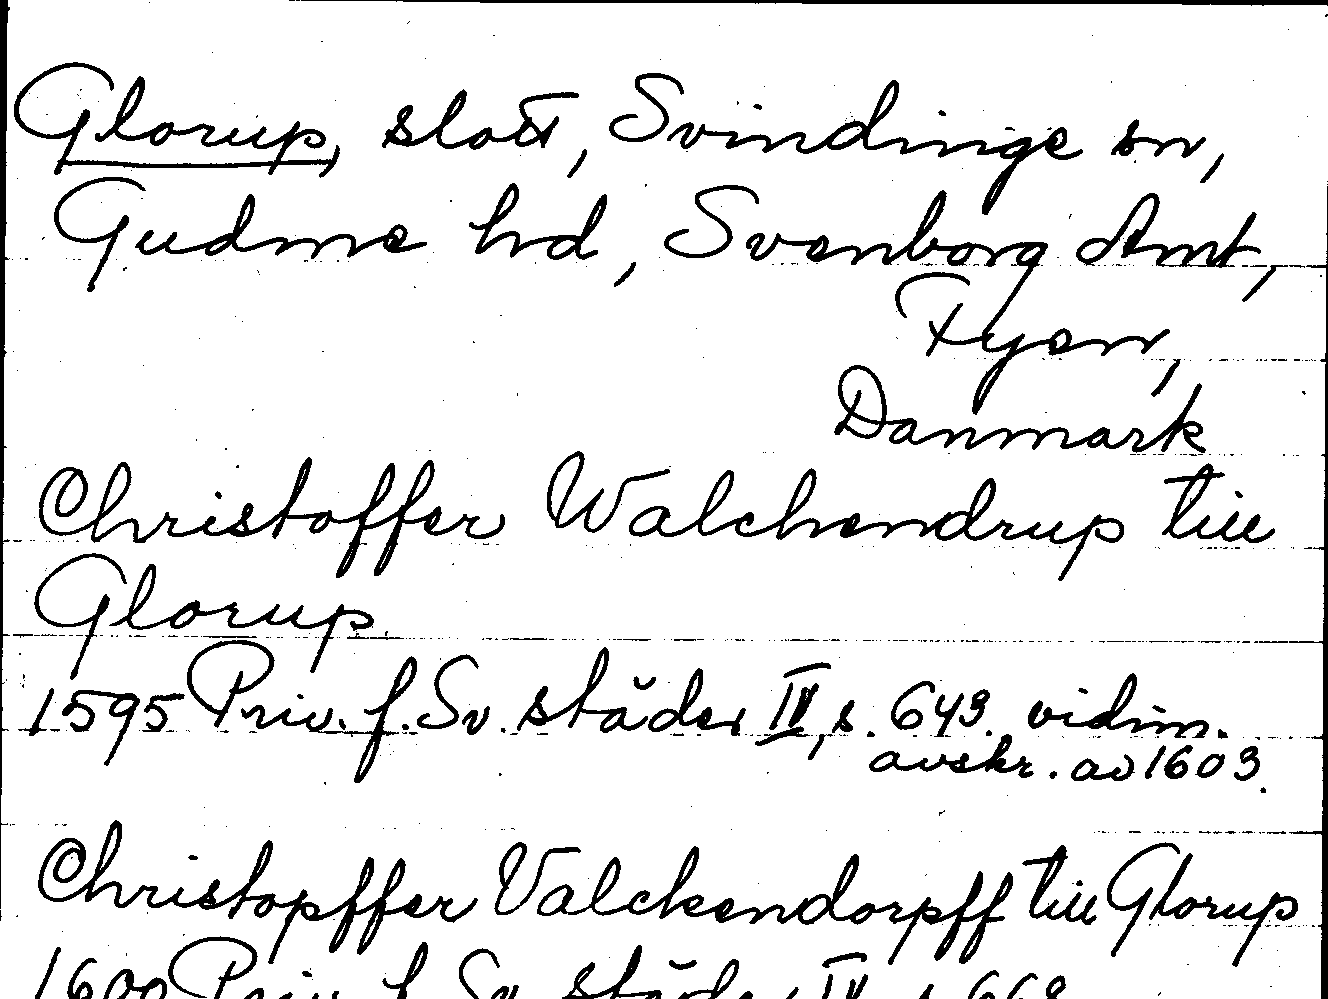 Glorup, slott, Svindinge sn,
Gudme hd, Svenborg Amt,
Fyen,
Danmark
Christoffer Walchendrup till
Glorup
1595 Priv. f. Sv. städer IV, s. 643. vidim.
avskr. av 1603.
Christopffer Valckendorpff till Glorup
1600 Priv. f. Sv. städer IV, s. 668